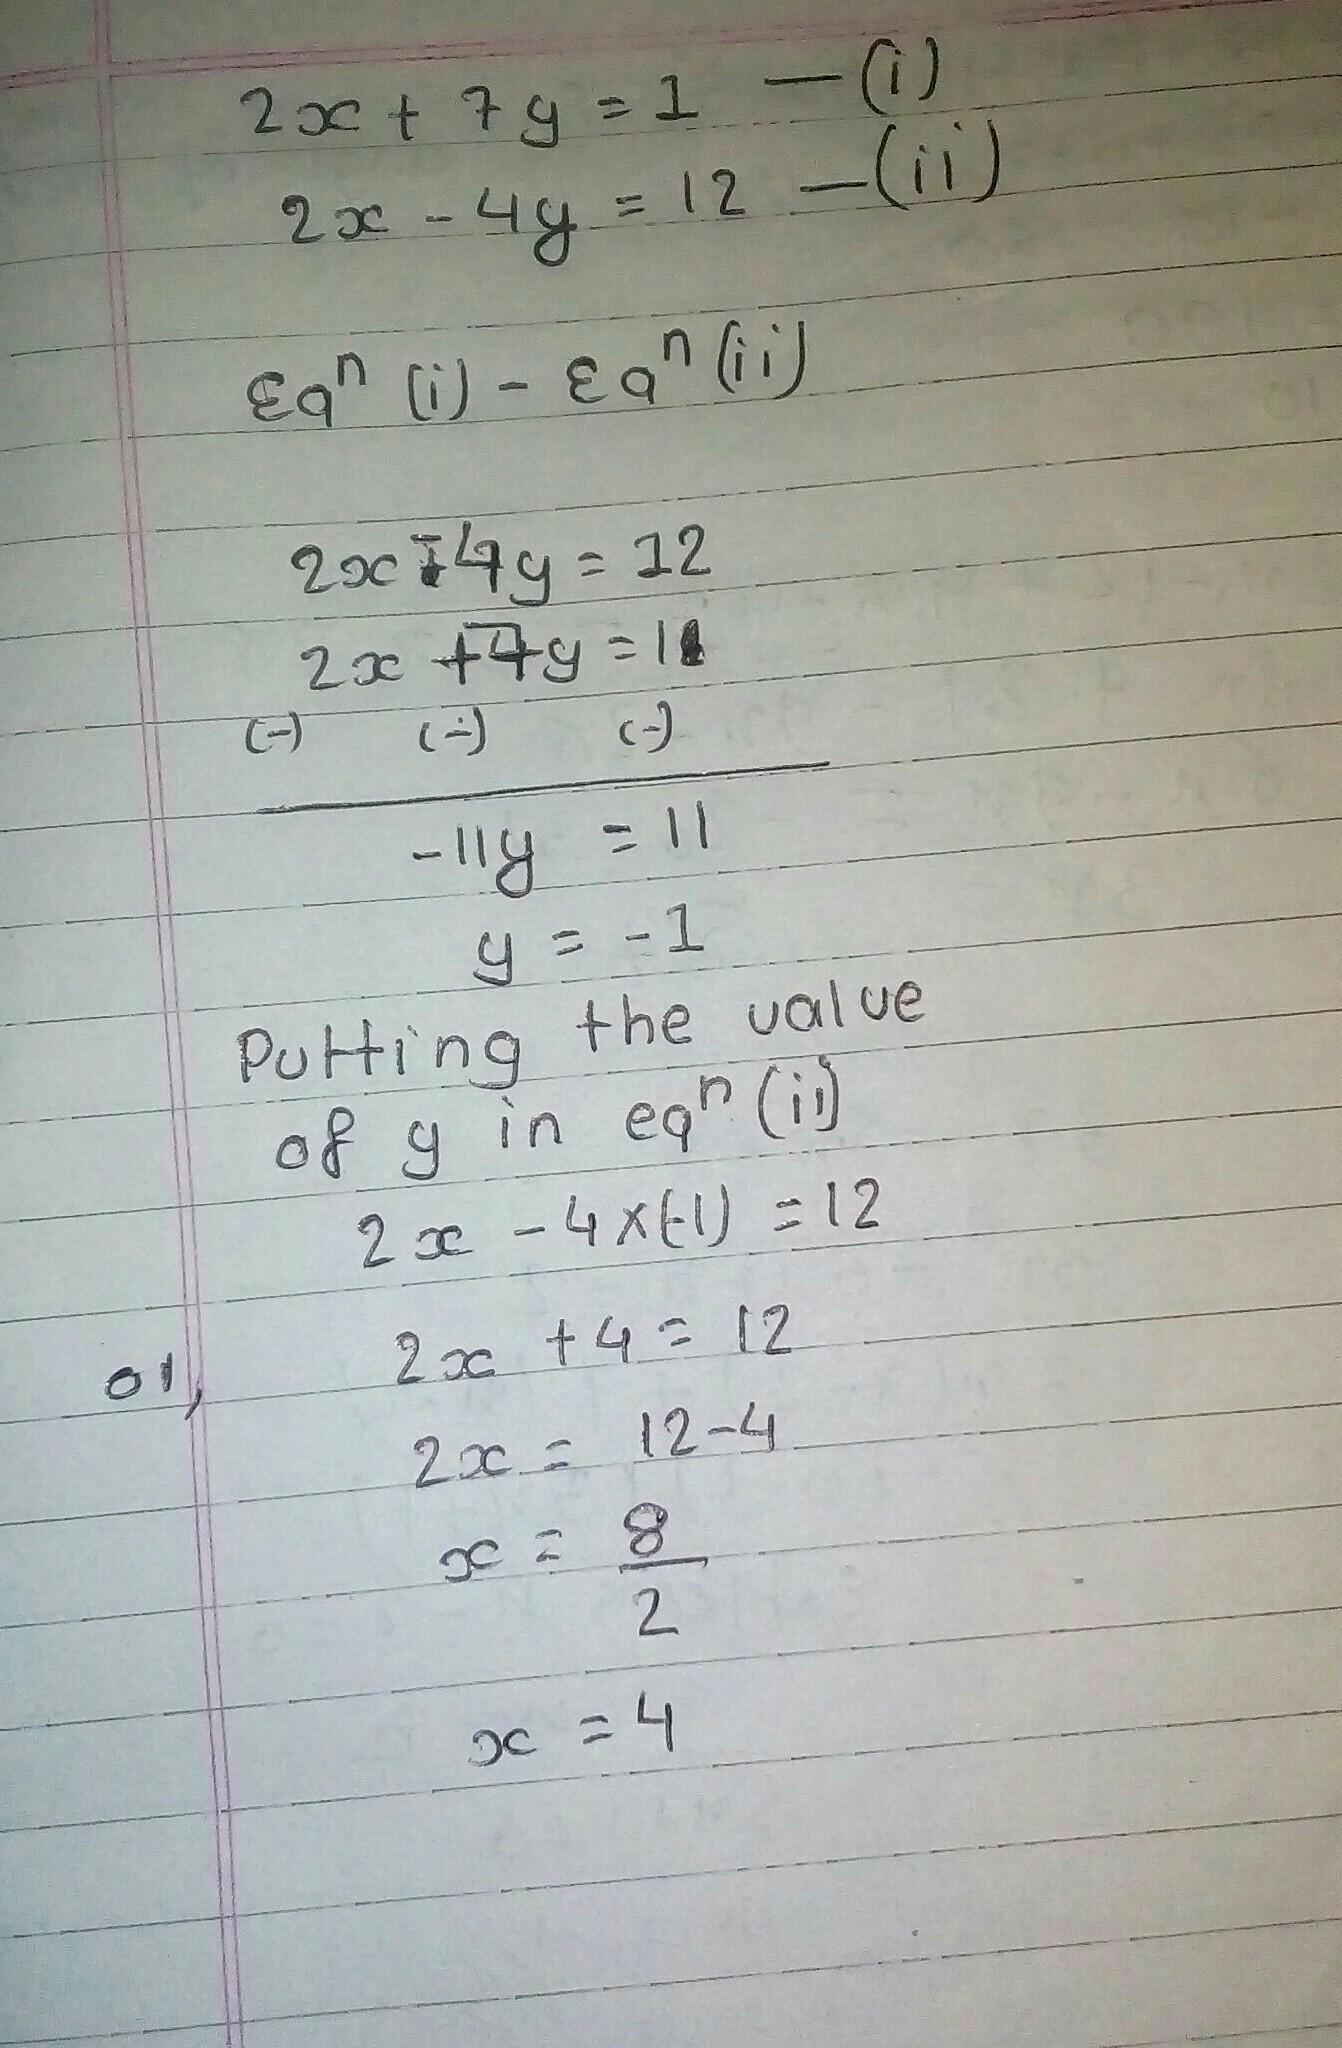 2x + 7y = 1 — (i)
2x - 4y = 12 — (ii)
Eqⁿ (i) - Eqⁿ (ii)
2x - 4y = 12
2x + 7y = 1
(-) (-) (-)
-11y = 11
y = -1
Putting the value
of y in eqⁿ (ii)
2x - 4×(-1) = 12
or, 2x + 4 = 12
2x = 12-4
x = 8/2
x = 4